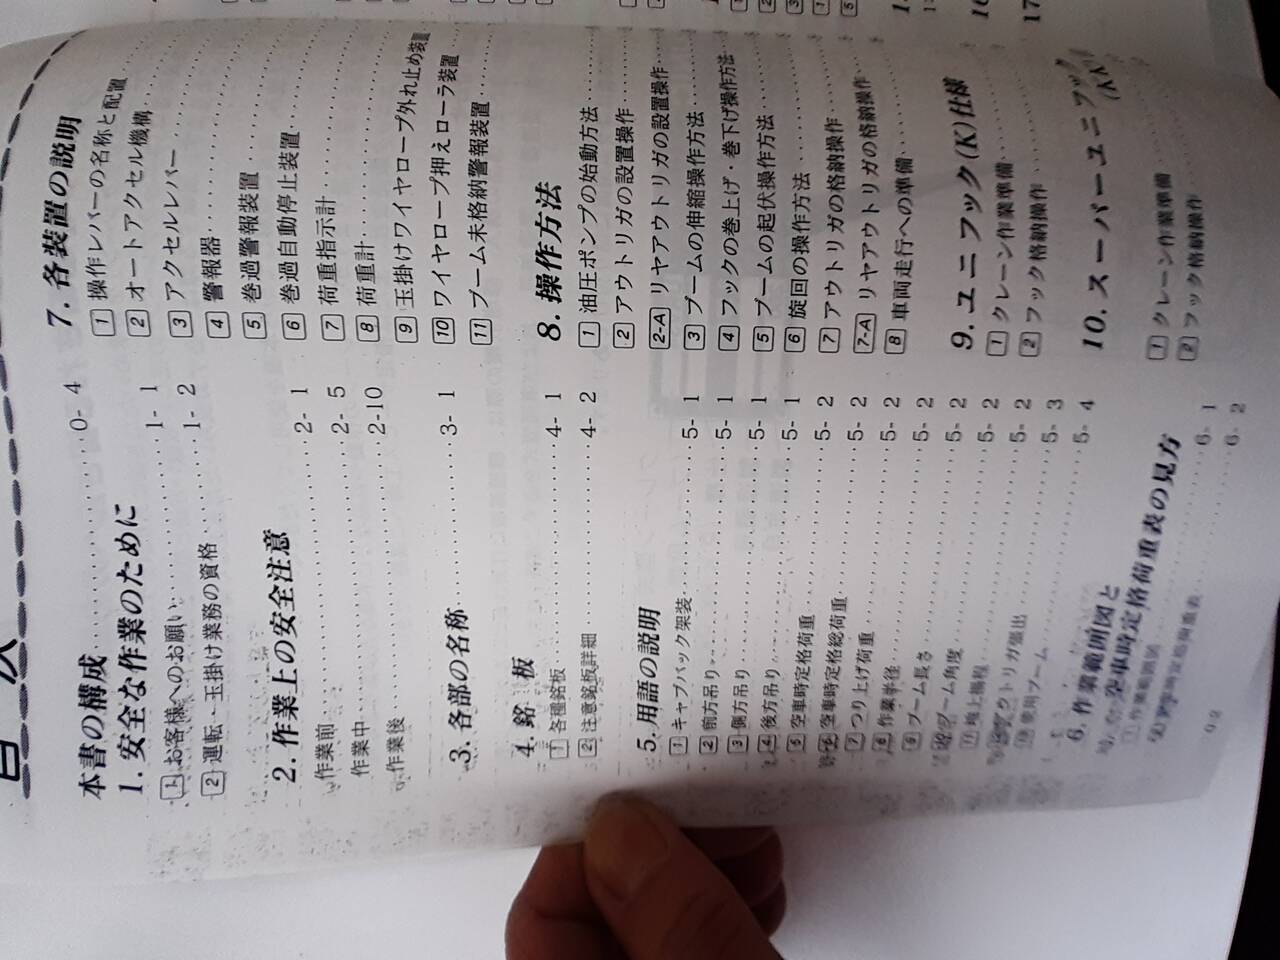 目 次
本書の構成 0- 4
1. 安全な作業のために
1 お客様へのお願い 1- 1
2 運転・玉掛け業務の資格 1- 2
2. 作業上の安全注意
作業前 2- 1
作業中 2- 5
作業後 2-10
3. 各部の名称 3- 1
4. 銘 板
1 各種銘板 4- 1
2 注意銘板詳細 4- 2
5. 用語の説明
1 キャブバック架装 5- 1
2 前方吊り 5- 1
3 側方吊り 5- 1
4 後方吊り 5- 1
5 空車時定格荷重 5- 2
6 空車時定格総荷重 5- 2
7 つり上げ荷重 5- 2
8 作業半径 5- 2
9 ブーム長さ 5- 2
ブーム角度 5- 2
11 地上揚程 5- 2
アウトリガ張出 5- 3
ブーム 5- 4
6. 作業範囲図と
空車時定格荷重表の見方
1 作業範囲図 6- 1
6- 2
7. 各装置の説明
1 操作レバーの名称と配置
2 オートアクセル機構
3 アクセルレバー
4 警報器
5 巻過警報装置
6 巻過自動停止装置
7 荷重指示計
8 荷重計
9 玉掛けワイヤロープ外れ止め装置
10 ワイヤロープ押えローラ装置
11 ブーム未格納警報装置
8. 操作方法
1 油圧ポンプの始動方法
2 アウトリガの設置操作
2-A リヤアウトリガの設置操作
3 ブームの伸縮操作方法
4 フックの巻上げ・巻下げ操作方法
5 ブームの起伏操作方法
6 旋回の操作方法
7 アウトリガの格納操作
7-A リヤアウトリガの格納操作
8 車両走行への準備
9. ユニフック(K)仕様
1 クレーン作業準備
2 フック格納操作
10. スーパーユニフック
1 クレーン作業準備
2 フック格納操作
0-2